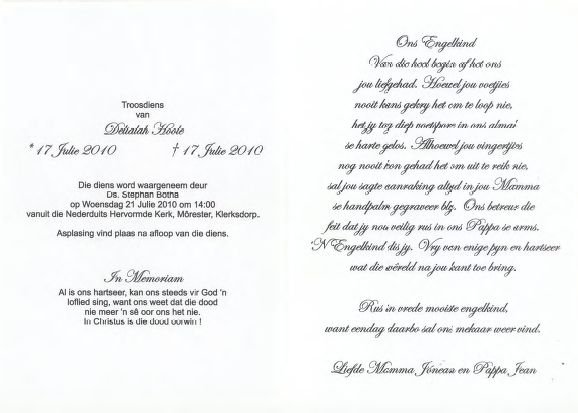 Troosdiens
van
Delialah Koole
* 17 Julie 2010 † 17 Julie 2010
Die diens word waargeneem deur
Ds. Stephan Botha
op Woensdag 21 Julie 2010 om 14:00
vanuit die Nederduits Hervormde Kerk, Môrester, Klerksdorp..
Asplasing vind plaas na afloop van die diens.
In Memoriam
Al is ons hartseer, kan ons steeds vir God 'n
loflied sing, want ons weet dat die dood
nie meer 'n sê oor ons het nie.
In Christus is die dood oorwin !
Ons Engelkind
Van die hool begin af het ons
jou liefgehad. Hoewel jou voetjies
nooit kans gekry het om te loop nie,
het jy tog diep voetspore in ons almal
se harte gelos. Alhoewel jou vingertjies
nog nooit kon gehad het om uit te reik nie,
sal jou sagte aanraking altyd in jou Mamma
se handpalm gegraveer bly. Ons betreur die
feit dat jy nou veilig rus in ons Pappa se arms.
'N Engelkind dis jy. Vry van enige pyn en hartseer
wat die wêreld na jou kant toe bring.
Rus in vrede mooiste engelkind,
want eendag daarbo sal ons mekaar weer vind.
Liefde Mamma Joneas en Pappa Jean